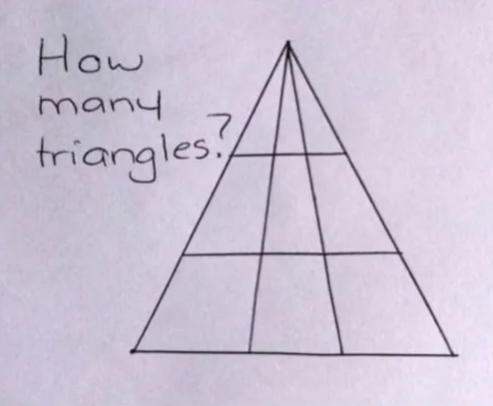 How
many
triangles.?